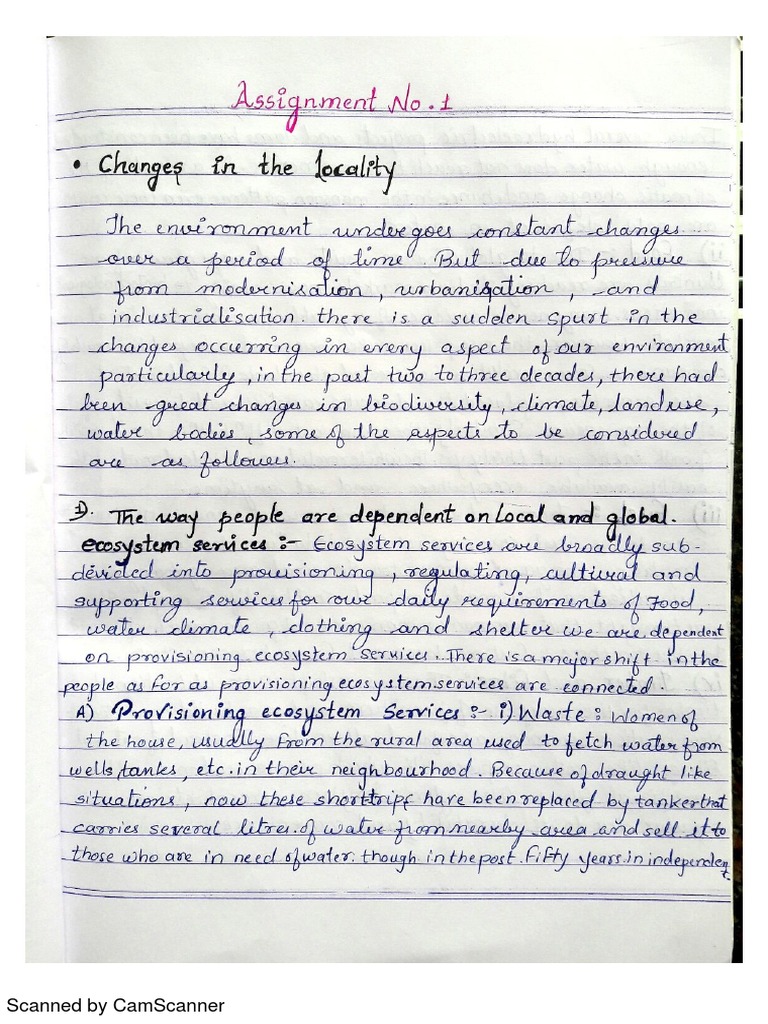 Assignment No. 1
• Changes in the locality
The environment undergoes constant changes
over a period of time. But due to pressure
from modernisation, urbanisation, and
industrialisation. there is a sudden spurt in the
changes occurring in every aspect of our environment
particularly, in the past two to three decades, there had
been great changes in biodiversity, climate, landuse,
water bodies, some of the aspects to be considered
are as follower.
1). The way people are dependent on local and global.
ecosystem services :- Ecosystem services are broadly sub-
devided into provisioning, regulating, cultural and
supporting services for our daily requirements of Food,
water climate, clothing and shelter we are dependent
on provisioning ecosystem services. There is a major shift in the
people as for as provisioning ecosystem services are connected.
A) Provisioning ecosystem Services :- i) Waste : Women of
the house, usually from the rural area used to fetch water from
wells, tanks, etc. in their neighbourhood. Because of draught like
situations, now these short trips have been replaced by tanker that
carries several litres. of water from nearby area and sell it to
those who are in need of water. though in the post. fifty years. in independent
Scanned by CamScanner